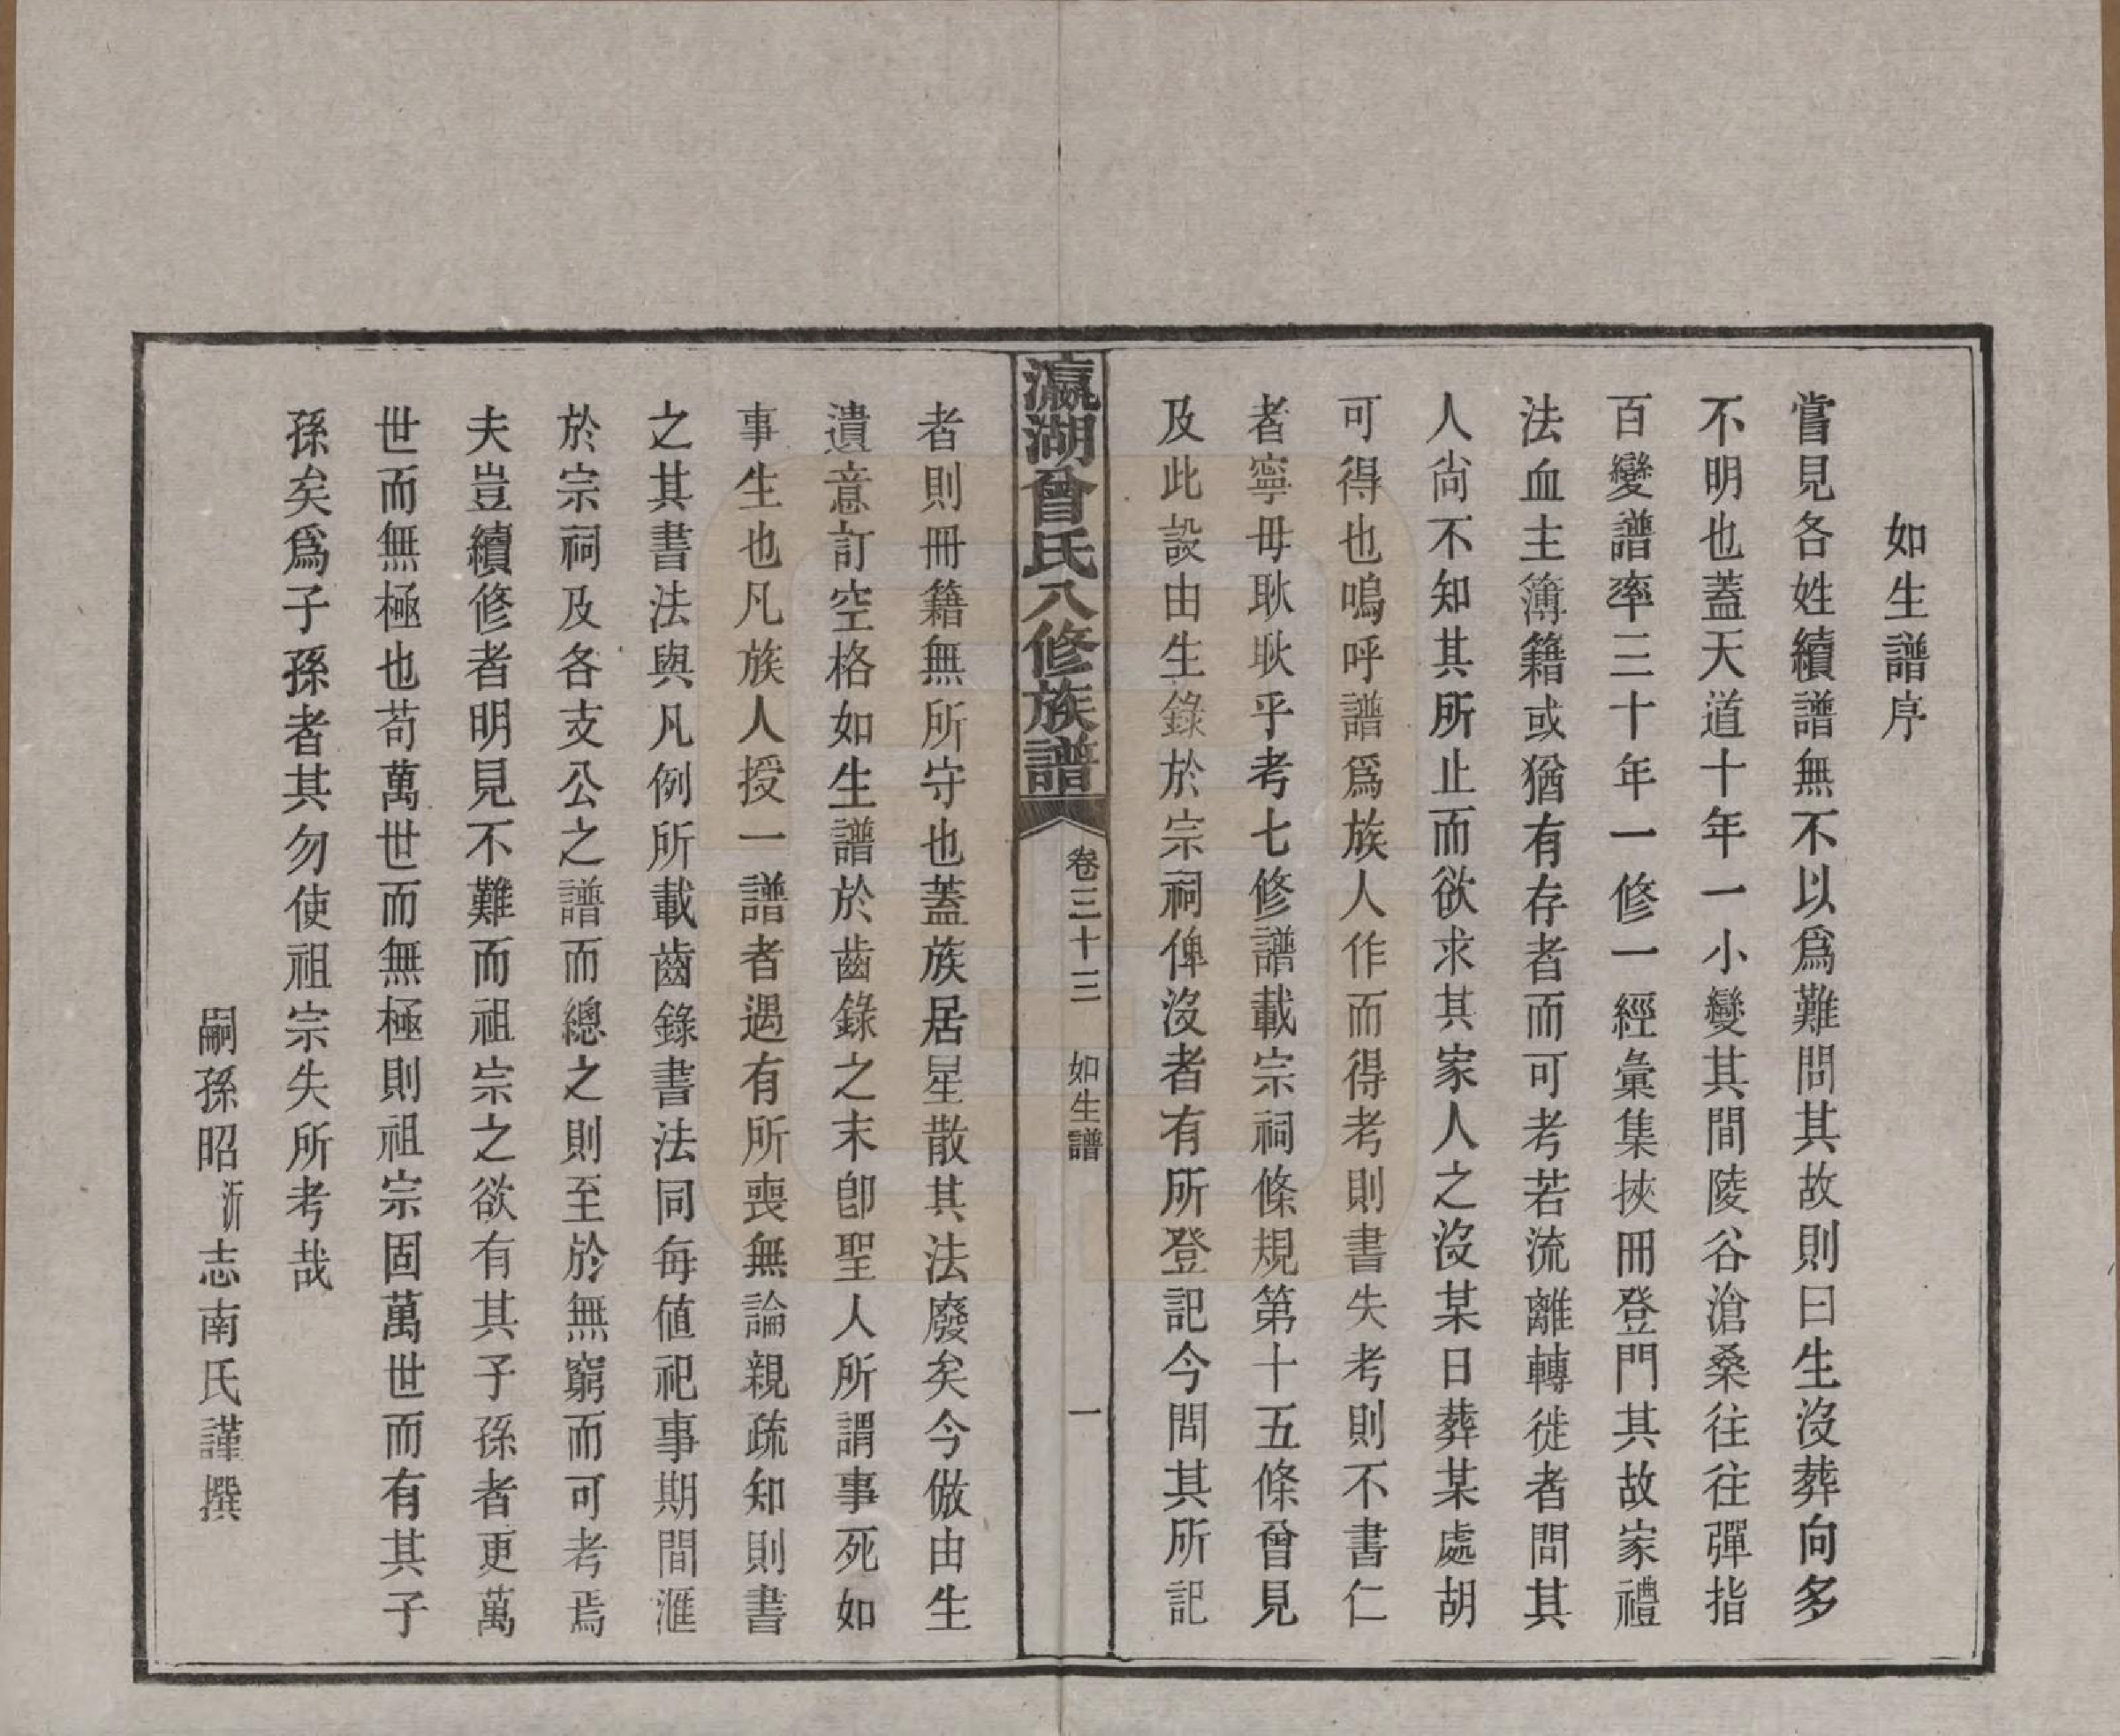 如生譜序
嘗見各姓續譜無不以爲難問其故則曰生沒葬向多
不明也蓋天道十年一小變其間陵谷滄桑往往彈指
百變譜率三十年一修一經彙集挾冊登門其故家禮
法血主簿籍或猶有存者而可考若流離轉徙者問其
人尙不知其所止而欲求其家人之沒某日葬某處胡
可得也嗚呼譜爲族人作而得考則書失考則不書仁
者寧毋耿耿乎考七修譜載宗祠條規第十五條曾見
及此設由生錄於宗祠俾沒者有所登記今問其所記
瀛湖曾氏八修族譜 卷三十三 如生譜 一
者則冊籍無所守也蓋族居星散其法廢矣今倣由生
遺意訂空格如生譜於齒錄之末卽聖人所謂事死如
事生也凡族人授一譜者遇有所喪無論親疏知則書
之其書法與凡例所載齒錄書法同每値祀事期間滙
於宗祠及各支公之譜而總之則至於無窮而可考焉
夫豈續修者明見不難而祖宗之欲有其子孫者更萬
世而無極也苟萬世而無極則祖宗固萬世而有其子
孫矣爲子孫者其勿使祖宗失所考哉
嗣孫昭沂志南氏謹撰